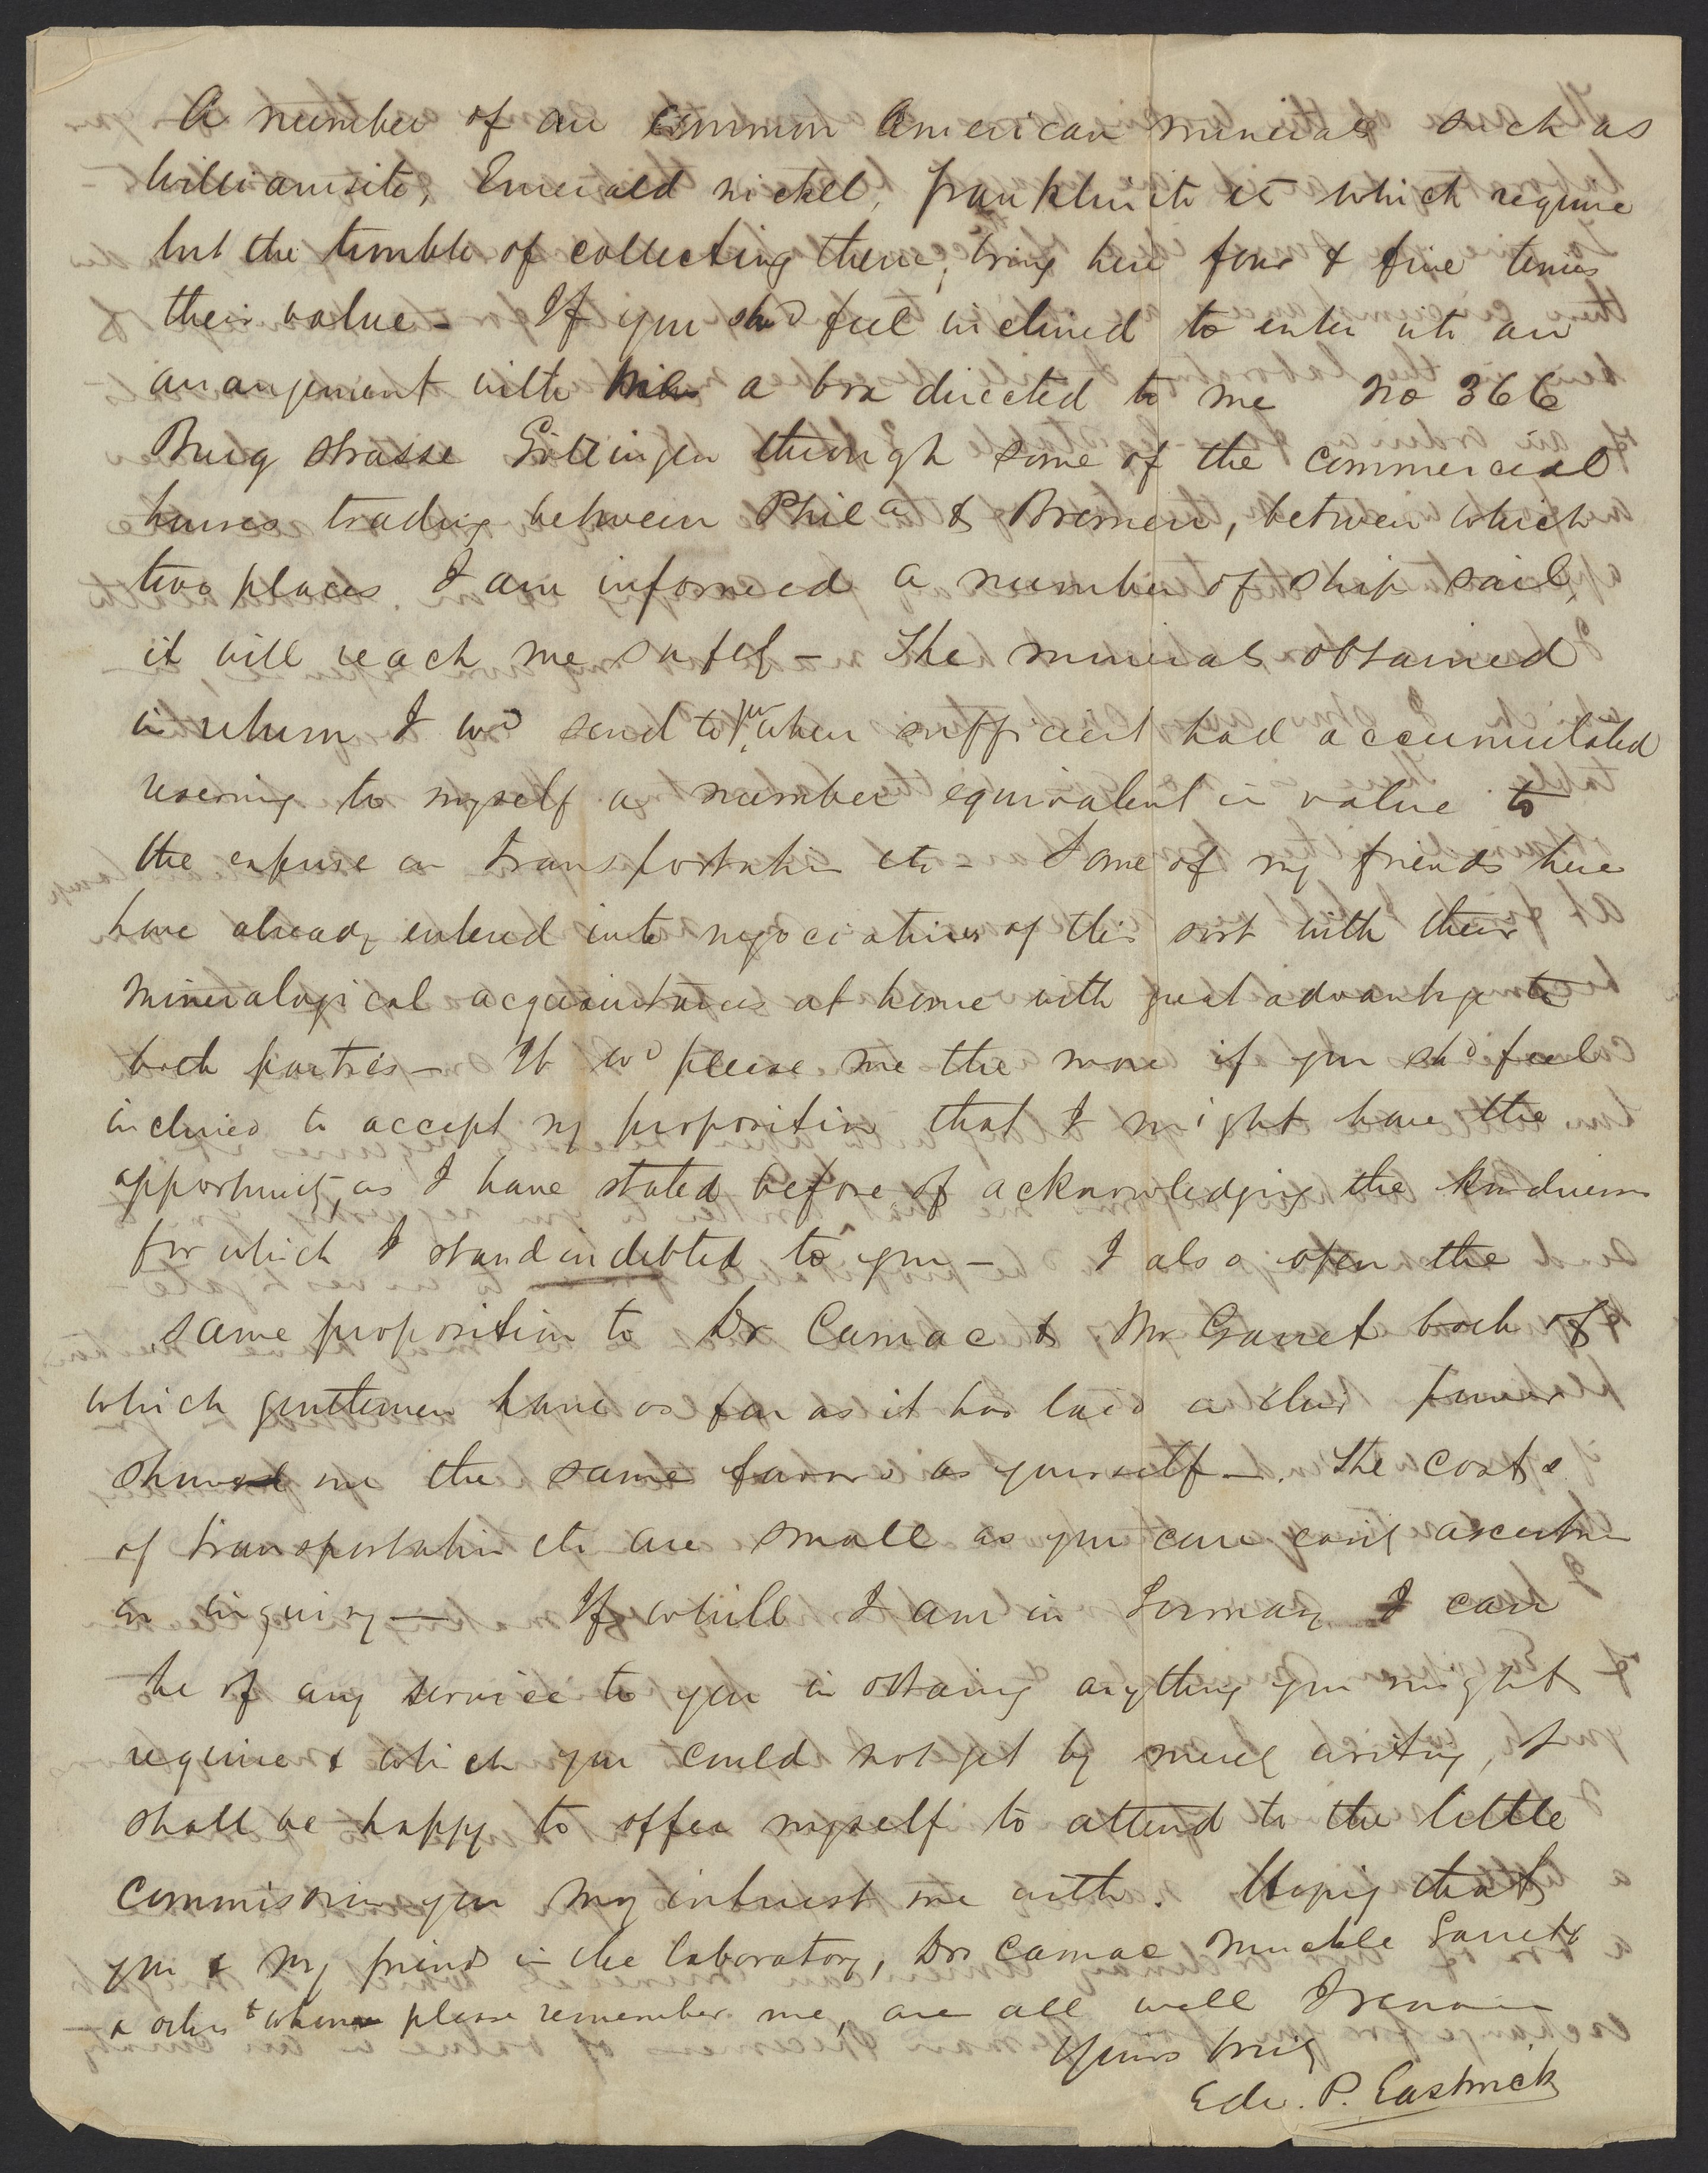 A number of our common American minerals such as
Williamsite, Emerald nickel, Franklinite etc which require
but the trouble of collecting them, bring here four & five times
their value - If you shd feel inclined to enter into an
arrangement with me a box directed to me No 366
Burg Strasse Göttingen through some of the commercial
houses trading between Phila & Bremen, between which
two places I am informed a number of ship sail,
it will reach me safely - The minerals obtained
in return I wd send to you when sufficient had accumulated
reserving to myself a number equivalent in value to
the expense on transportation etc - Some of my friends here
have already entered into negociations of this sort with their
mineralogical acquaintances at home with great advantage to
both parties - It wd please me the more if you shd feel
inclined to accept my proposition that I might have the
opportunity, as I have stated before of acknowledging the kindness
for which I stand indebted to you - I also open the
same proposition to Dr Camac & Mr Garret both of
which gentlemen have as far as it has laid in their power
showed me the same favors as yourself -. The costs
of transportation etc are small as you can easily ascertain
on inquiry - If while I am in Germany I can
be of any service to you in obtaing anything you might
require & which you could not get by merely writing, I
shall be happy to offer myself to attend to the little
commission you may intrust me with. Hoping that
you & my friends in the laboratory, Drs Camac Muckle Garrett
& others to whom please remember me, are all well I remain
Yours truly
Edw. P. Eastwick